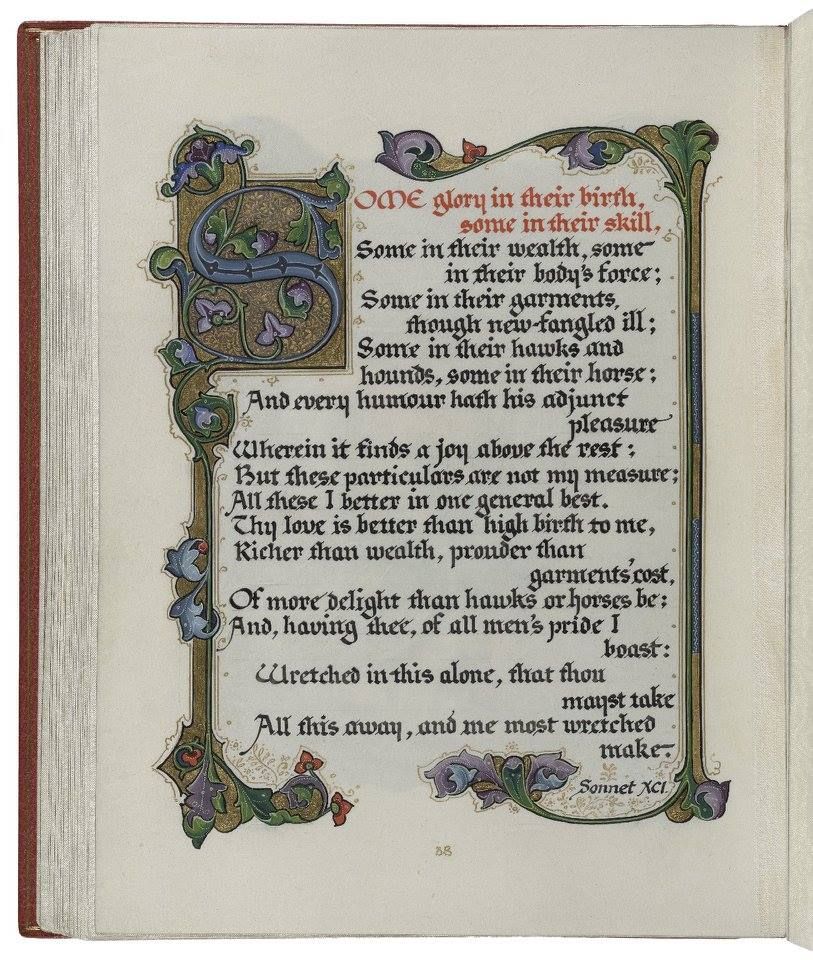 SOME glory in their birth,
some in their skill,
Some in their wealth, some
in their body's force;
Some in their garments,
though new-fangled ill;
Some in their hawks and
hounds, some in their horse;
And every humour hath his adjunct
pleasure
Wherein it finds a joy above the rest;
But these particulars are not my measure;
All these I better in one general best.
Thy love is better than high birth to me,
Richer than wealth, prouder than
garments' cost,
Of more delight than hawks or horses be;
And, having thee, of all men's pride I
boast:
Wretched in this alone, that thou
mayst take
All this away, and me most wretched
make.
Sonnet XCI.
38